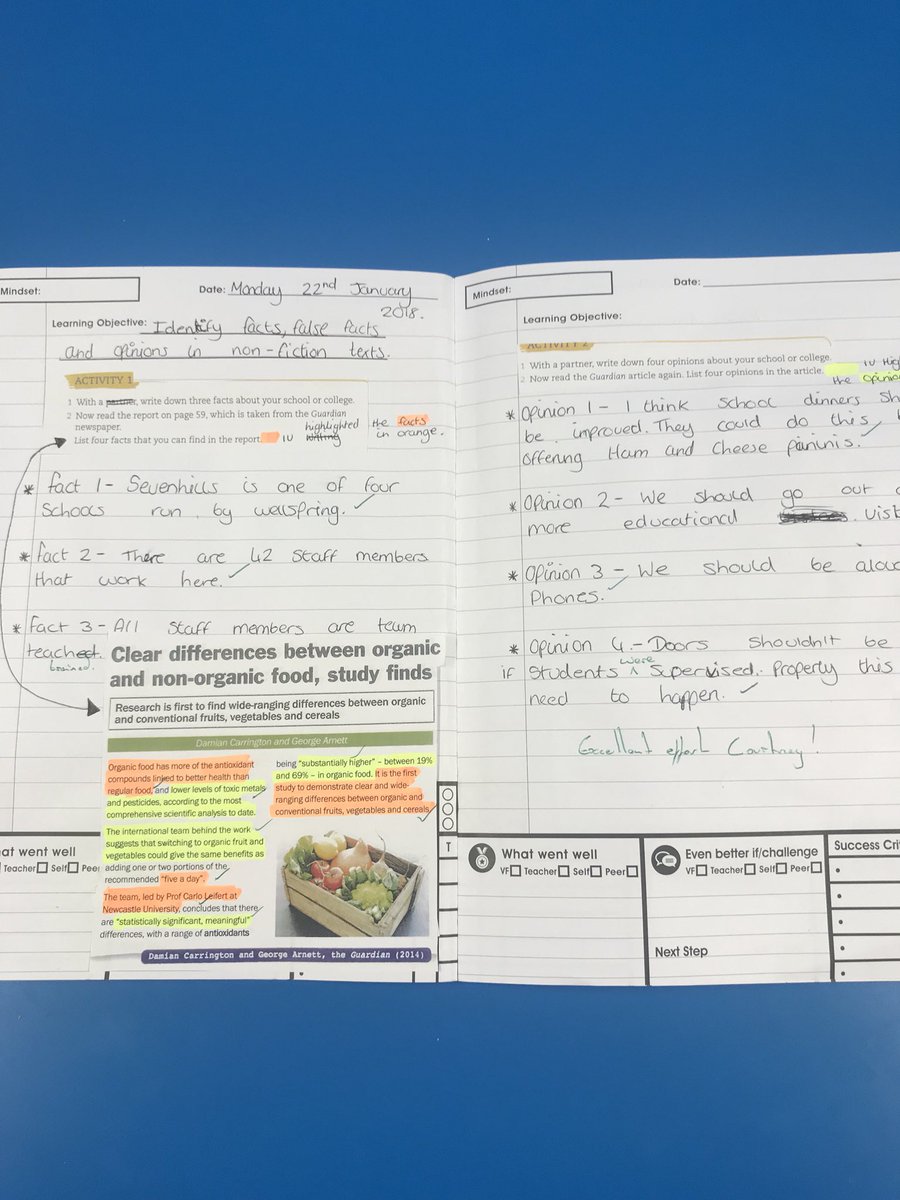 Mindset:
Date: Monday 22nd January
2018.
Learning Objective: Identify facts, false facts
and opinions in non-fiction texts.
ACTIVITY 1
1 With a partner, write down three facts about your school or college.
2 Now read the report on page 59, which is taken from the Guardian
newspaper.
List four facts that you can find in the report.
highlighted
the facts
in orange.
* Fact 1 - Sevenhills is one of four
Schools run by wellspring.
* Fact 2 - There are 42 Staff members
that work here.
* Fact 3 - All Staff members are team
teached.
trained.
Clear differences between organic
and non-organic food, study finds
Research is first to find wide-ranging differences between organic
and conventional fruits, vegetables and cereals
Damian Carrington and George Arnett
Organic food has more of the antioxidant
compounds linked to better health than
regular food, and lower levels of toxic metals
and pesticides, according to the most
comprehensive scientific analysis to date.
The international team behind the work
suggests that switching to organic fruit and
vegetables could give the same benefits as
adding one or two portions of the
recommended "five a day".
The team, led by Prof Carlo Leifert at
Newcastle University, concludes that there
are "statistically significant, meaningful"
differences, with a range of antioxidants
being "substantially higher" – between 19%
and 69% – in organic food. It is the first
study to demonstrate clear and wide-
ranging differences between organic and
conventional fruits, vegetables and cereals
Damian Carrington and George Arnett, the Guardian (2014)
at went well
Teacher Self Peer
T
Mindset:
Date:
Learning Objective:
ACTIVITY 2
1 With a partner, write down four opinions about your school or college.
2 Now read the Guardian article again. List four opinions in the article.
the opinio
* Opinion 1 - I think School dinners Sh
be improved. They could do this b
offering Ham and Cheese paninis.
* Opinion 2 - We should go out o
more educational visit
* Opinion 3 - We should be alou
Phones.
* Opinion 4 - Doors Shouldn't be
if Students were Supervised. Property this
need to happen.
Excellent effort Courtney!
What went well
VF Teacher Self Peer
Even better if/challenge
VF Teacher Self Peer
Next Step
Success Cri